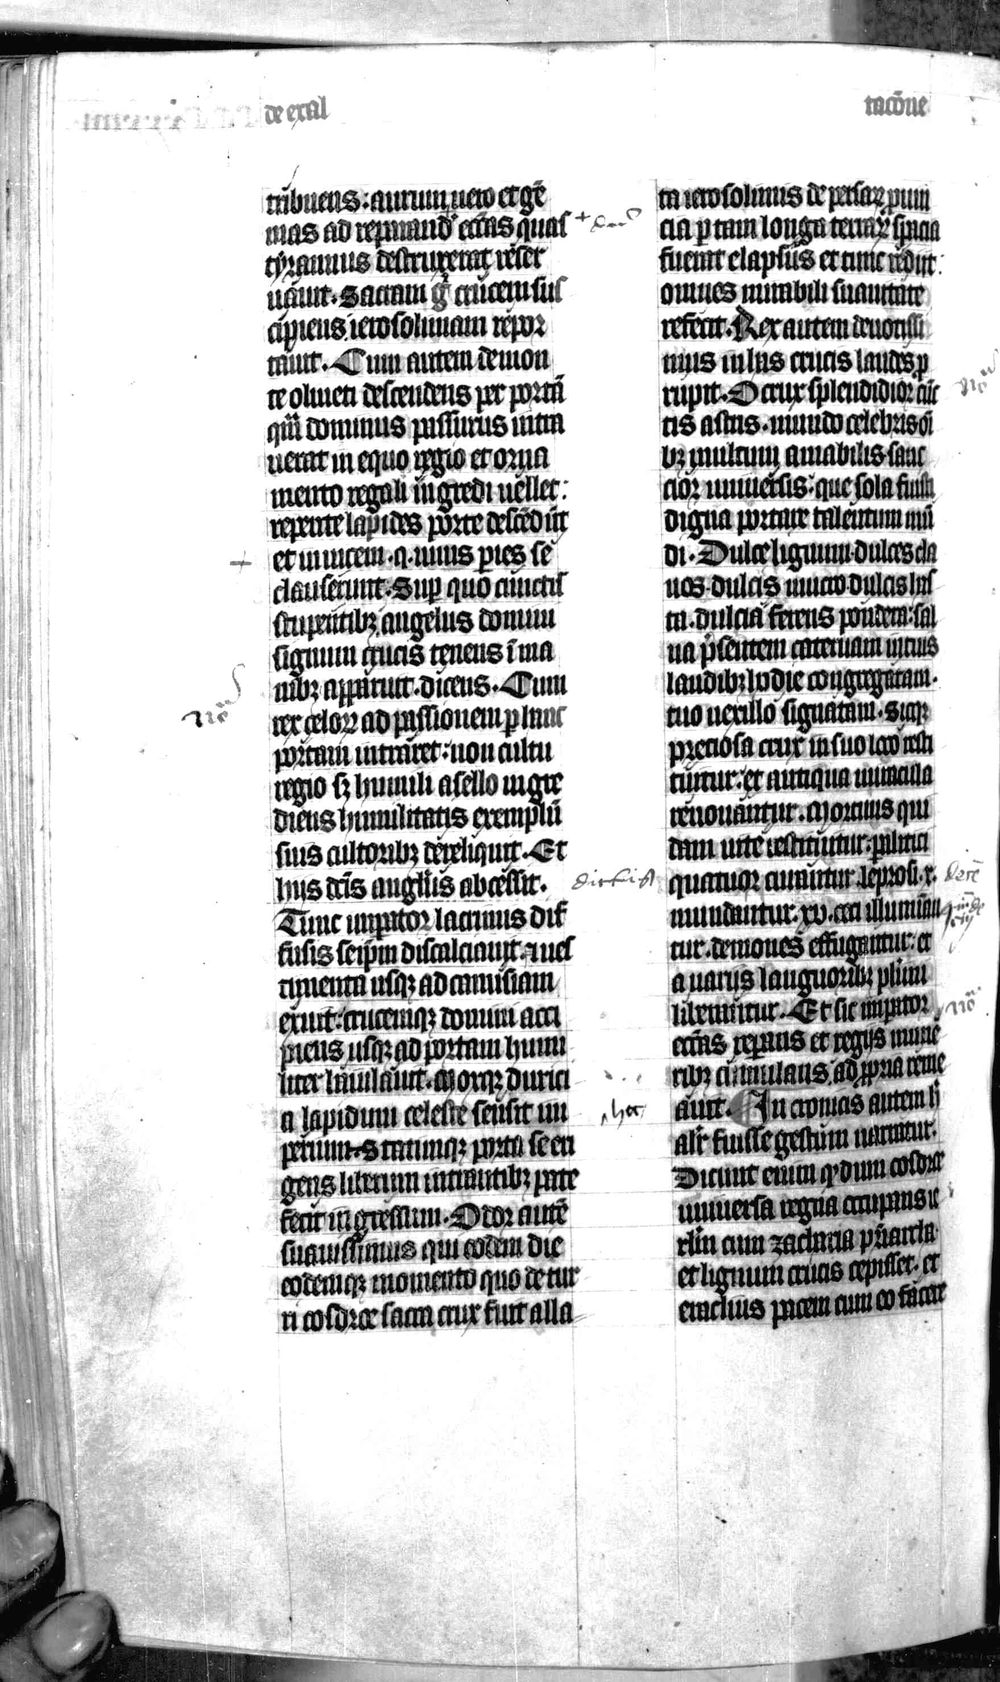 de exal
tacõne
tribuens : aurum uero et gẽ
mas ad reparand' ecc̃as quas
tyrannus destruxerat reser
uauit . Sacram g̊ crucem sus
cipiens ierosolimam repor
tauit . Cum autem de mon
te oliueti descendens per portã
quã dominus passurus intra
uerat in equo regio et orna
mento regali ingredi uellet :
repente lapides porte descẽdũt
et inuicem .q. unus paries se
clauserunt . Sup quo cunctis
stupentibꝫ angelus domini
signum crucis tenens ĩ ma
nibꝫ apparuit . dicens . Cum
rex celoꝝ ad passionem p hanc
portam intraret : non cultu
regio sꝫ humili asello ingre
diens humilitatis exemplũ
suis cultoribꝫ dereliquit . Et
hijs dc̃is angelus abcessit .
Tunc imꝑator lacrimis dif
fusis seip̃m discalciauit . ues
timenta usqꝫ ad camisiam
exuit : crucemqꝫ domini acci
piens usqꝫ ad portam humi
liter baiulauit . Moxqꝫ durici
a lapidum celeste sensit im
perium . Statimqꝫ porta se eri
gens liberum intrantibꝫ pate
fecit ingressum . Odor autẽ
suauissimus qui eodem die
eodemqꝫ momento quo de tur
ri cosdroe sacra crux fuit alla
ta ierosolimis de persaꝝ puin
cia p tam longa terraꝝ spacia
fuerat elapsus et tunc redijt :
omnes mirabili suauitate
refecit . Rex autem deuotissi
mus in hus crucis laudes p
rupit . O crux splendidior cũc
tis astris . mundo celebris oĩ
bꝫ multum amabilis sanc
cior uniuersis : que sola fuisti
digna portare talentum mũ
di . Dulce lignum . dulces cla
uos . dulcis mucro . dulcis has
ta . dulcia ferens pondera : sal
ua p̃sentem cateruam in tuis
laudibꝫ hodie congregatam .
tuo uexillo signatam . Sicqꝫ
preciosa crux in suo loco resti
tuitur : et antiqua miracula
renouantur . Mortuus qui
dam uite restituitur : paralitici
quatuor curantur . leprosi . x .
mundantur . xv . ceci illuminan
tur . demones effugantur : et
a uarijs languoribꝫ plĩmi
liberantur . Et sic imꝑator
ecc̃as reparans et regijs mune
ribꝫ cumulans . ad ꝓpria reme
auit . In cronicis autem h̃
alr̃ fuisse gestum narratur .
Dicunt enim qꝫ dum cosdroe
uniuersa regna occupans ie
rlm̃ cum zacharia p̃riarcha
et lignum crucis cepisset . et
eraclius pacem cum eo facere